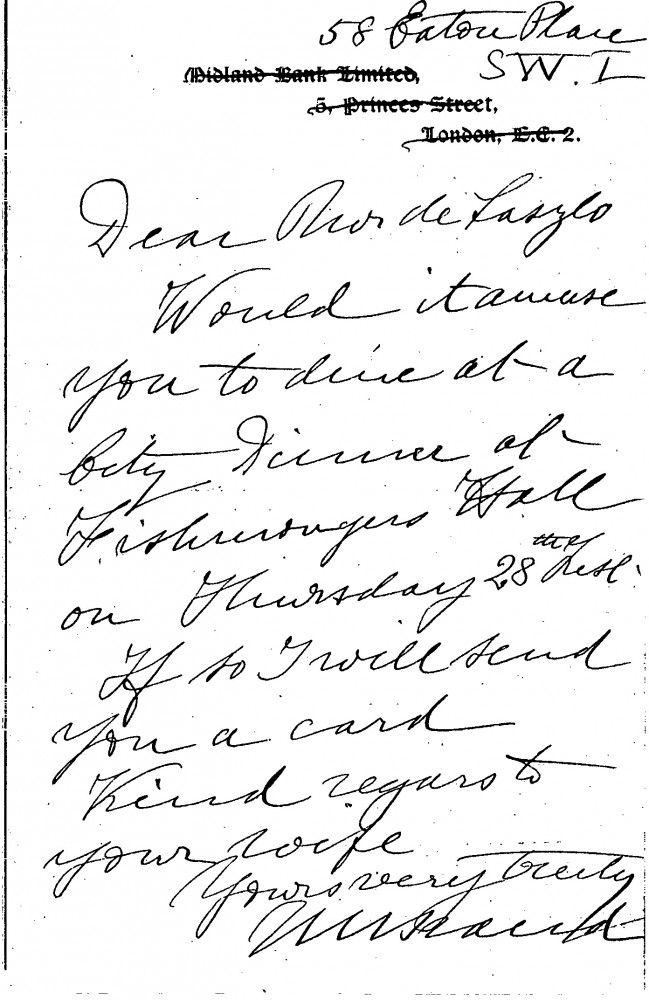 58 Eaton Place
S.W.1
Midland Bank Limited,
5, Princes Street,
London, E.C. 2.
Dear Mr de Laszlo
Would it amuse
you to dine at a
City Dinner at
Fishmongers Hall
on Thursday 28th
If so I will send
you a card
Kind regars to
your wife
Yours very truly